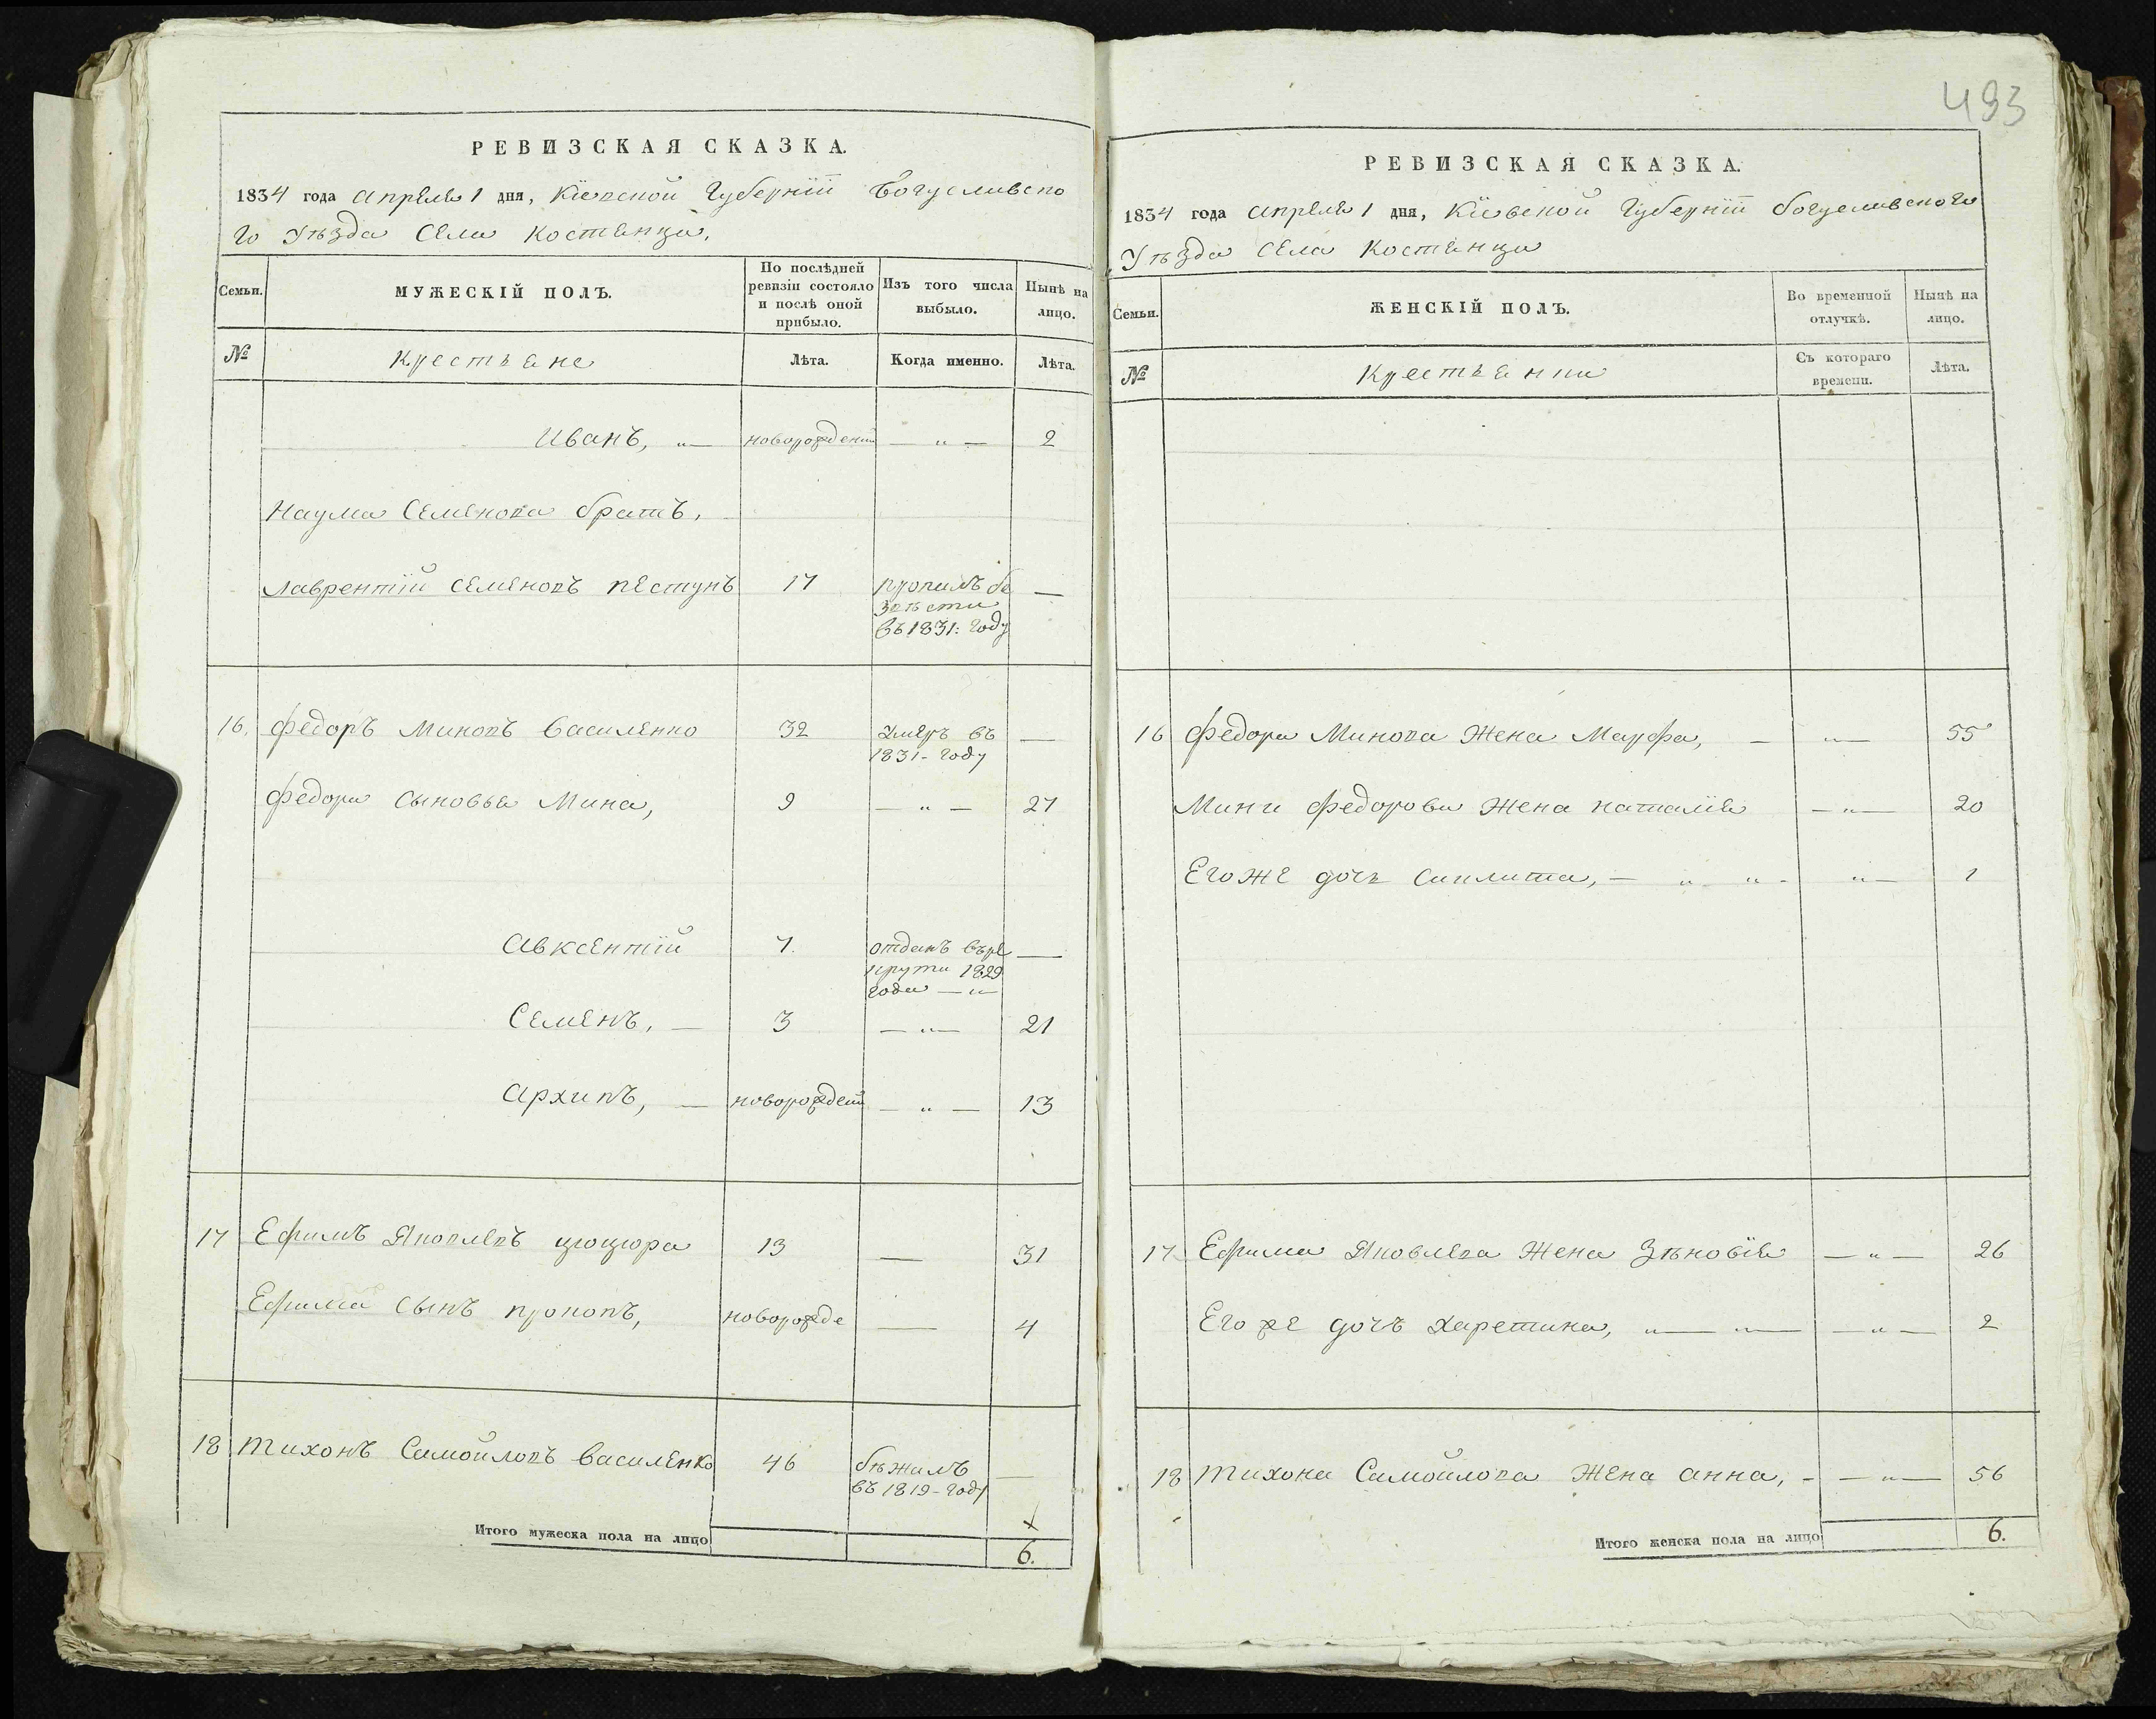 493
РЕВИЗСКАЯ СКАЗКА.
1834 года апреля 1 дня, Кіевской Губерніи Богуславско
го Уѣзда Села Костянца,
Семьи.
МУЖЕСКІЙ ПОЛЪ.
По послѣдней ревизіи состояло и послѣ оной прибыло.
Изъ того числа выбыло.
Нынѣ на лицо.
№
Крестьяне
Лѣта.
Когда именно.
Лѣта.
Иванъ, „— новорожденій — „ — 2
Наума Семенова братъ,
Лаврентій Семеновъ Пестунъ 17 пропалъ бе —
звѣсти
въ 1831: году
16. Федоръ Миновъ Василенко 32 Умеръ въ —
1831- году
Федора сыновья Мина, 9 — „ — 27
Авксентій 7. отданъ въре —
круты 1829
года — „ —
Семенъ, — 3 — „ — 21
Архипъ, — новорожденій — „ — 13
17 Ефимъ Яковлевъ Цюцюра 13 — 31
Ефима сынъ Прокопъ, новорожде — 4
18 Тихонъ Самойловъ Василенко 46 бѣжалъ —
въ 1819- году
Итого мужеска пола на лицо 6.
РЕВИЗСКАЯ СКАЗКА.
1834 года апреля 1 дня, Кіевской Губерніи Богуславского
Уѣзда Села Костянца
Семьи.
ЖЕНСКІЙ ПОЛЪ.
Во временной отлучкѣ.
Нынѣ на лицо.
№
Крестьянки
Съ котораго времени.
Лѣта.
16 Федора Минова Жена Марфа, — — „ — 55
Мины Федорова Жена Наталія — „ — 20
Егоже дочь Синлита, — „ - „ - „ — 1
17 Ефима Яковлева Жена Зѣновія — „ — 26
Его же дочъ Харетина, „ — „ — — „ — 2
18 Тихона Самойлова Жена Анна, - — „ — 56
Итого женска пола на лицо 6.